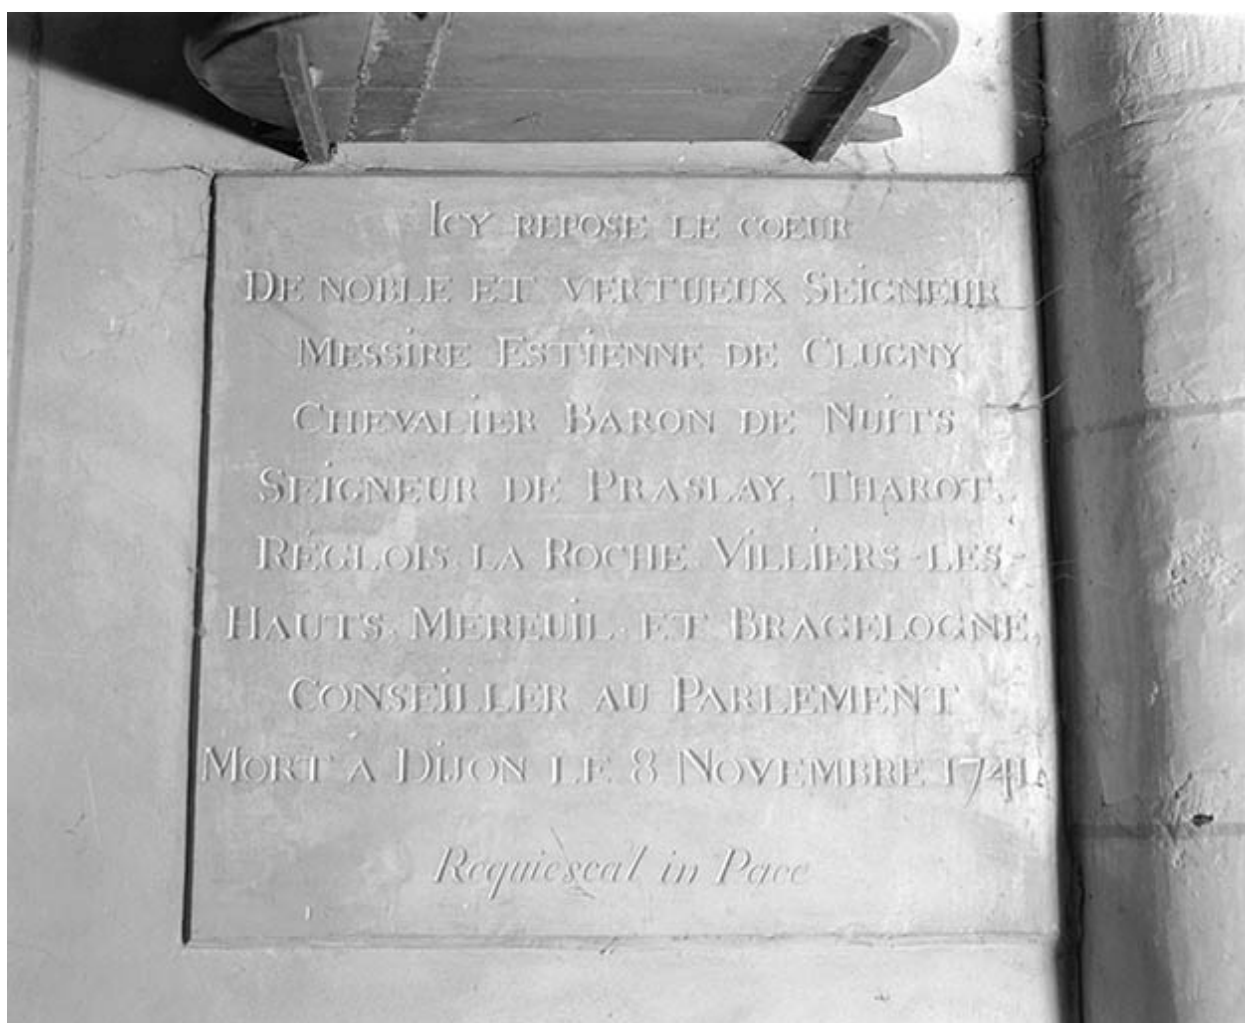 Icy repose le coeur
De noble et vertueux Seigneur
Messire Estienne de Clugny
Chevalier Baron de Nuits
Seigneur de Praslay, Tharot,
Réglois la Roche Villiers-les-
Hauts, Mereuil et Bragelogne,
Conseiller au Parlement
Mort à Dijon le 8 Novembre 1741.
Requiescat in Pace